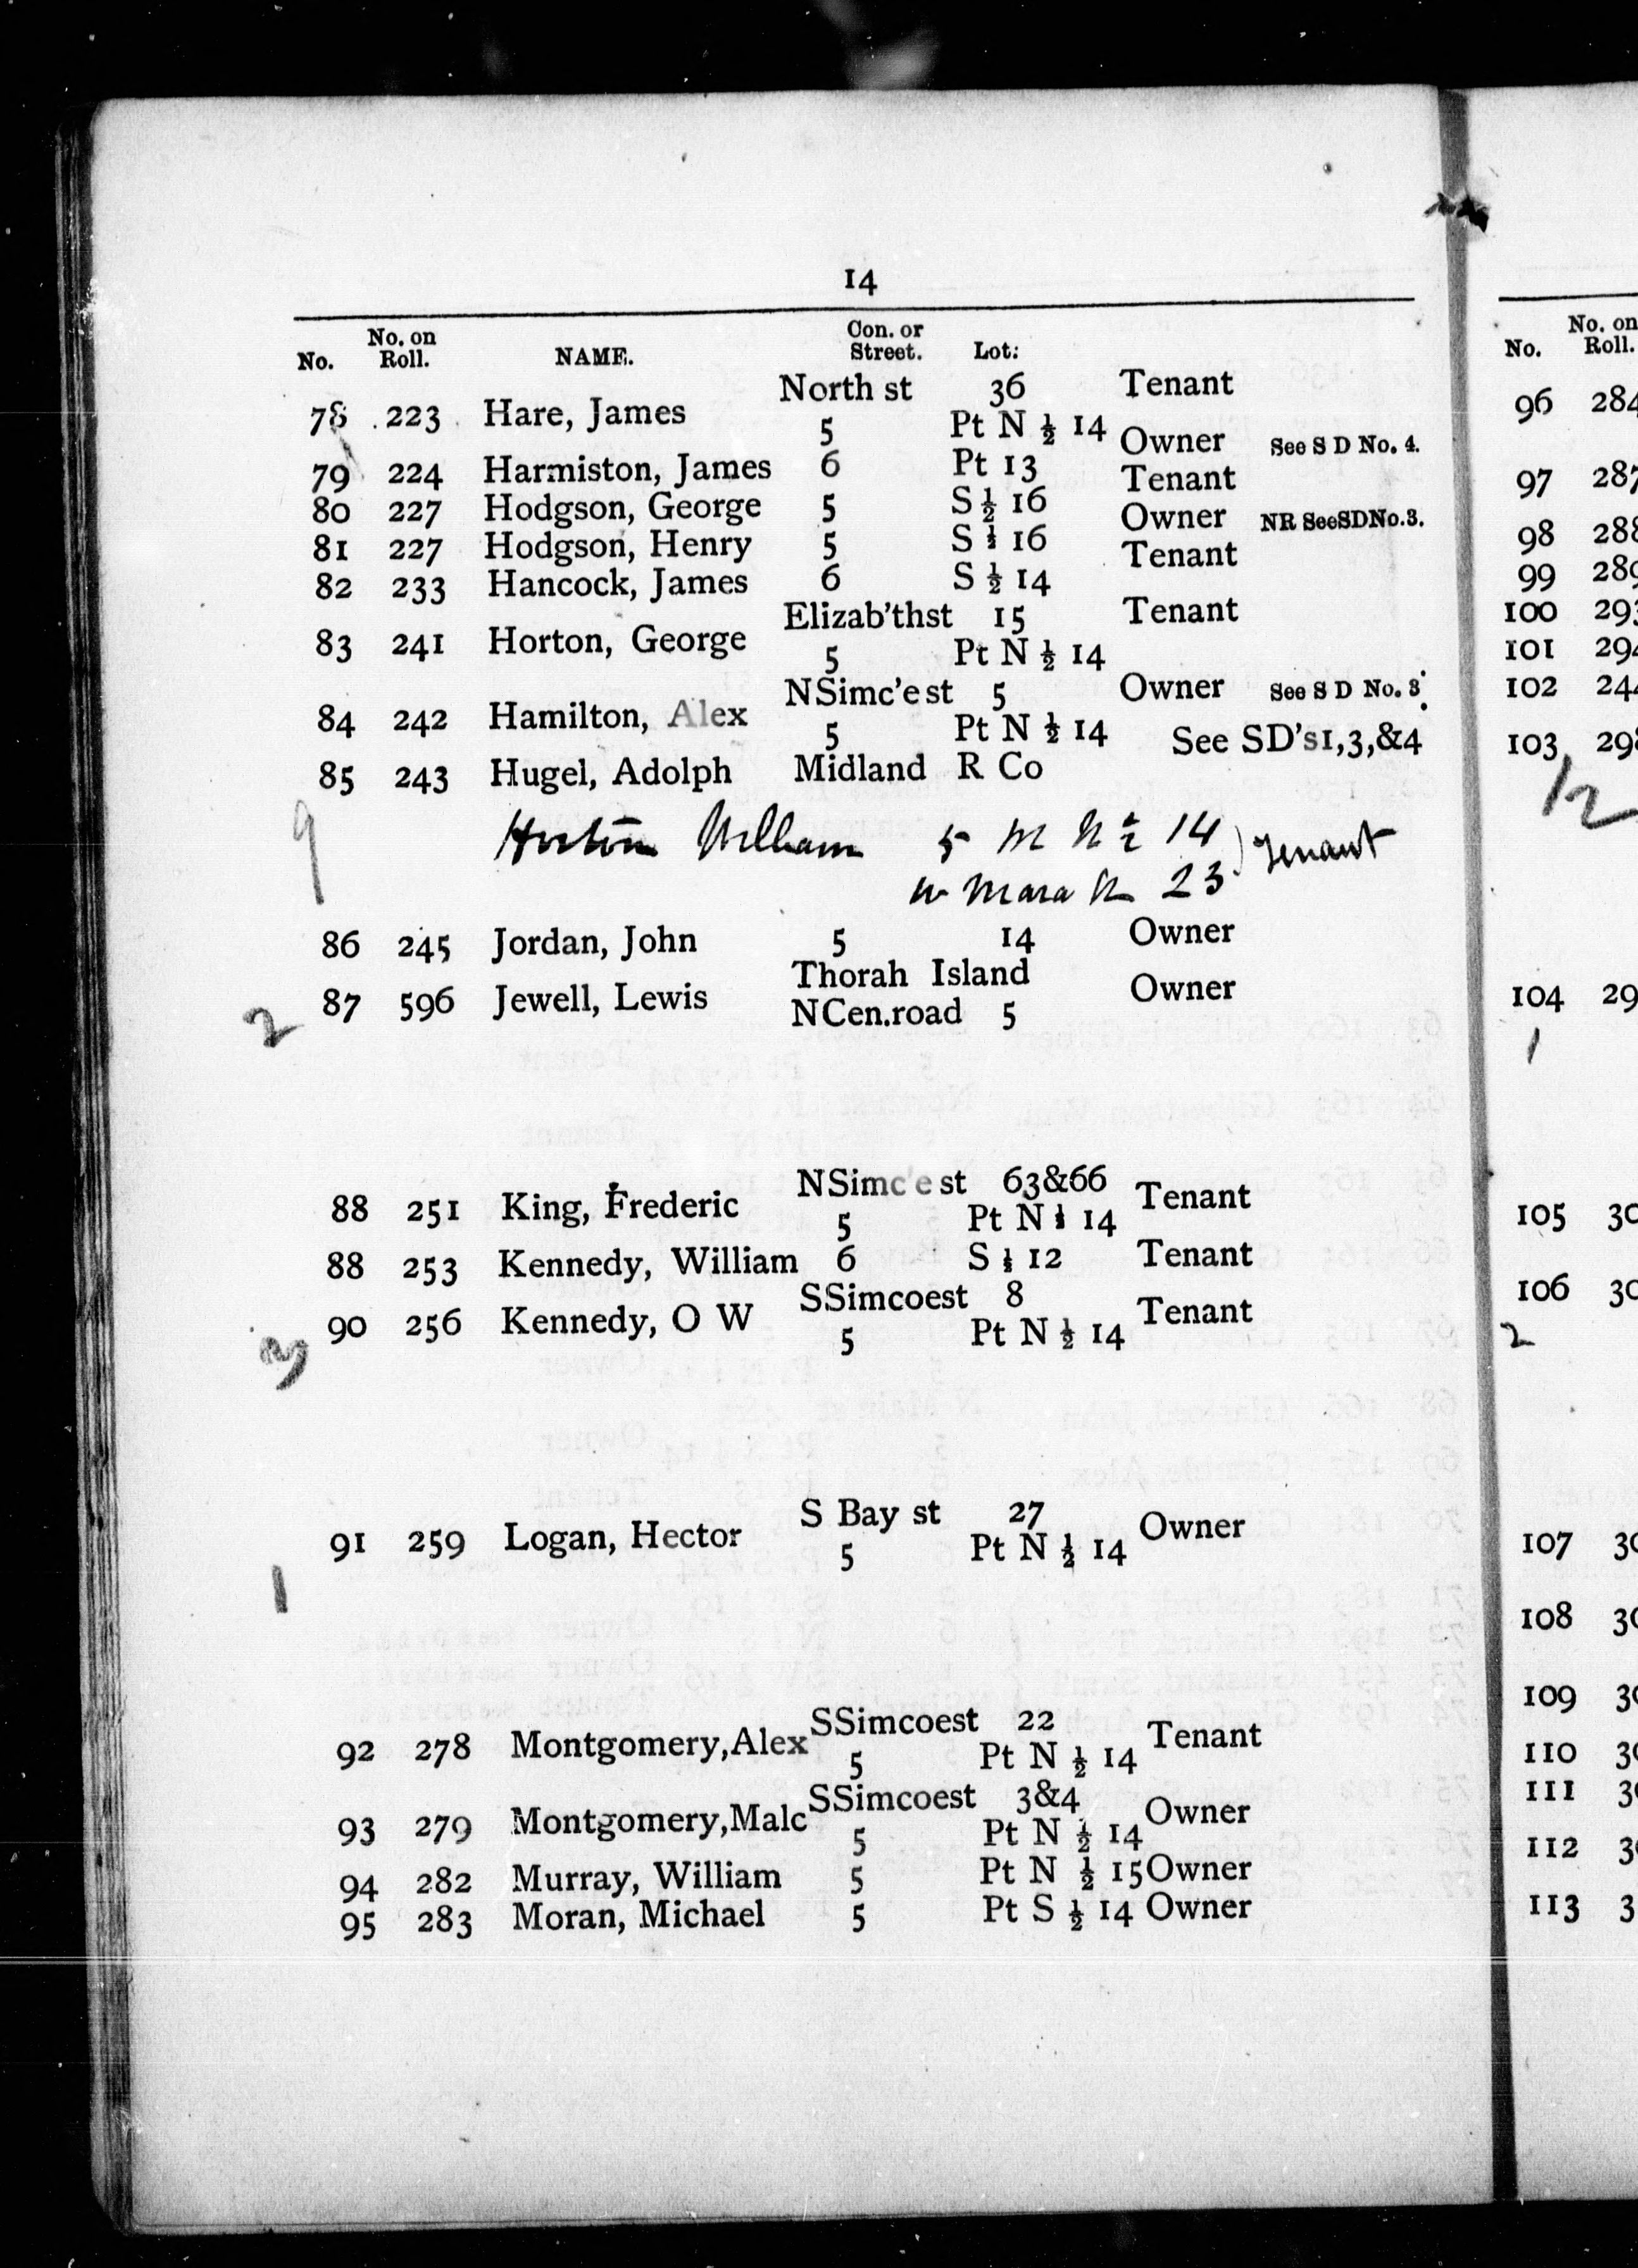 14
No. No. on Roll. NAME. Con. or Street. Lot:
North st 36 Tenant
78 223 Hare, James 5 Pt N ½ 14
79 224 Harmiston, James 6 Pt 13 Owner See S D No. 4.
80 227 Hodgson, George 5 S ½ 16 Tenant
81 227 Hodgson, Henry 5 S ½ 16 Owner NR SeeSDNo.3.
82 233 Hancock, James 6 S ½ 14 Tenant
Elizab'thst 15 Tenant
83 241 Horton, George 5 Pt N ½ 14
NSimc'e st 5 Owner See S D No. 3
84 242 Hamilton, Alex 5 Pt N ½ 14
85 243 Hugel, Adolph Midland R Co See SD's1,3,&4
9 Horton William 5 N ½ 14 Tenant
W Mara 23
86 245 Jordan, John 5 14 Owner
Thorah Island
87 596 Jewell, Lewis NCen.road 5 Owner
2
NSimc'e st 63&66
88 251 King, Frederic 5 Pt N ½ 14 Tenant
88 253 Kennedy, William 6 S ½ 12 Tenant
SSimcoest 8
90 256 Kennedy, O W 5 Pt N ½ 14 Tenant
3
S Bay st 27
91 259 Logan, Hector 5 Pt N ½ 14 Owner
1
SSimcoest 22
92 278 Montgomery,Alex 5 Pt N ½ 14 Tenant
SSimcoest 3&4
93 279 Montgomery,Malc 5 Pt N ½ 14 Owner
94 282 Murray, William 5 Pt N ½ 15 Owner
95 283 Moran, Michael 5 Pt S ½ 14 Owner
No. No. on Roll.
96 284
97 287
98 288
99 289
100 293
101 294
102 244
103 298
12
104 29
1
105 30
106 30
2
107 30
108 30
109 30
110 30
111 30
112 30
113 3